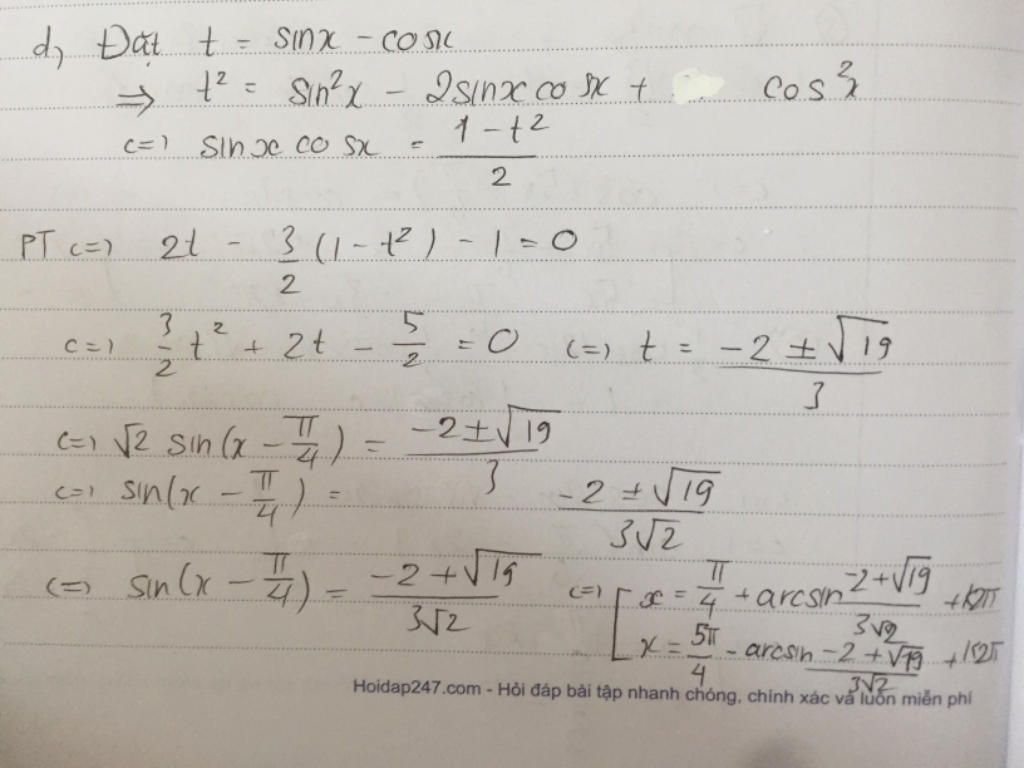 d, Đặt t = sinx - cosx
=> t² = sin²x - 2sinxcosx + cos²x
<=> sinx cosx = (1 - t²)/2
PT <=> 2t - 3/2 (1 - t²) - 1 = 0
<=> 3/2 t² + 2t - 5/2 = 0 <=> t = (-2 ± √19)/3
<=> √2 sin(x - π/4) = (-2 ± √19)/3
<=> sin(x - π/4) = (-2 ± √19)/(3√2)
<=> sin(x - π/4) = (-2 + √19)/(3√2) <=> [ x = π/4 + arcsin (-2 + √19)/(3√2) + k2π
x = 5π/4 - arcsin (-2 + √19)/(3√2) + k2π
Hoidap247.com - Hỏi đáp bài tập nhanh chóng, chính xác và luôn miễn phí